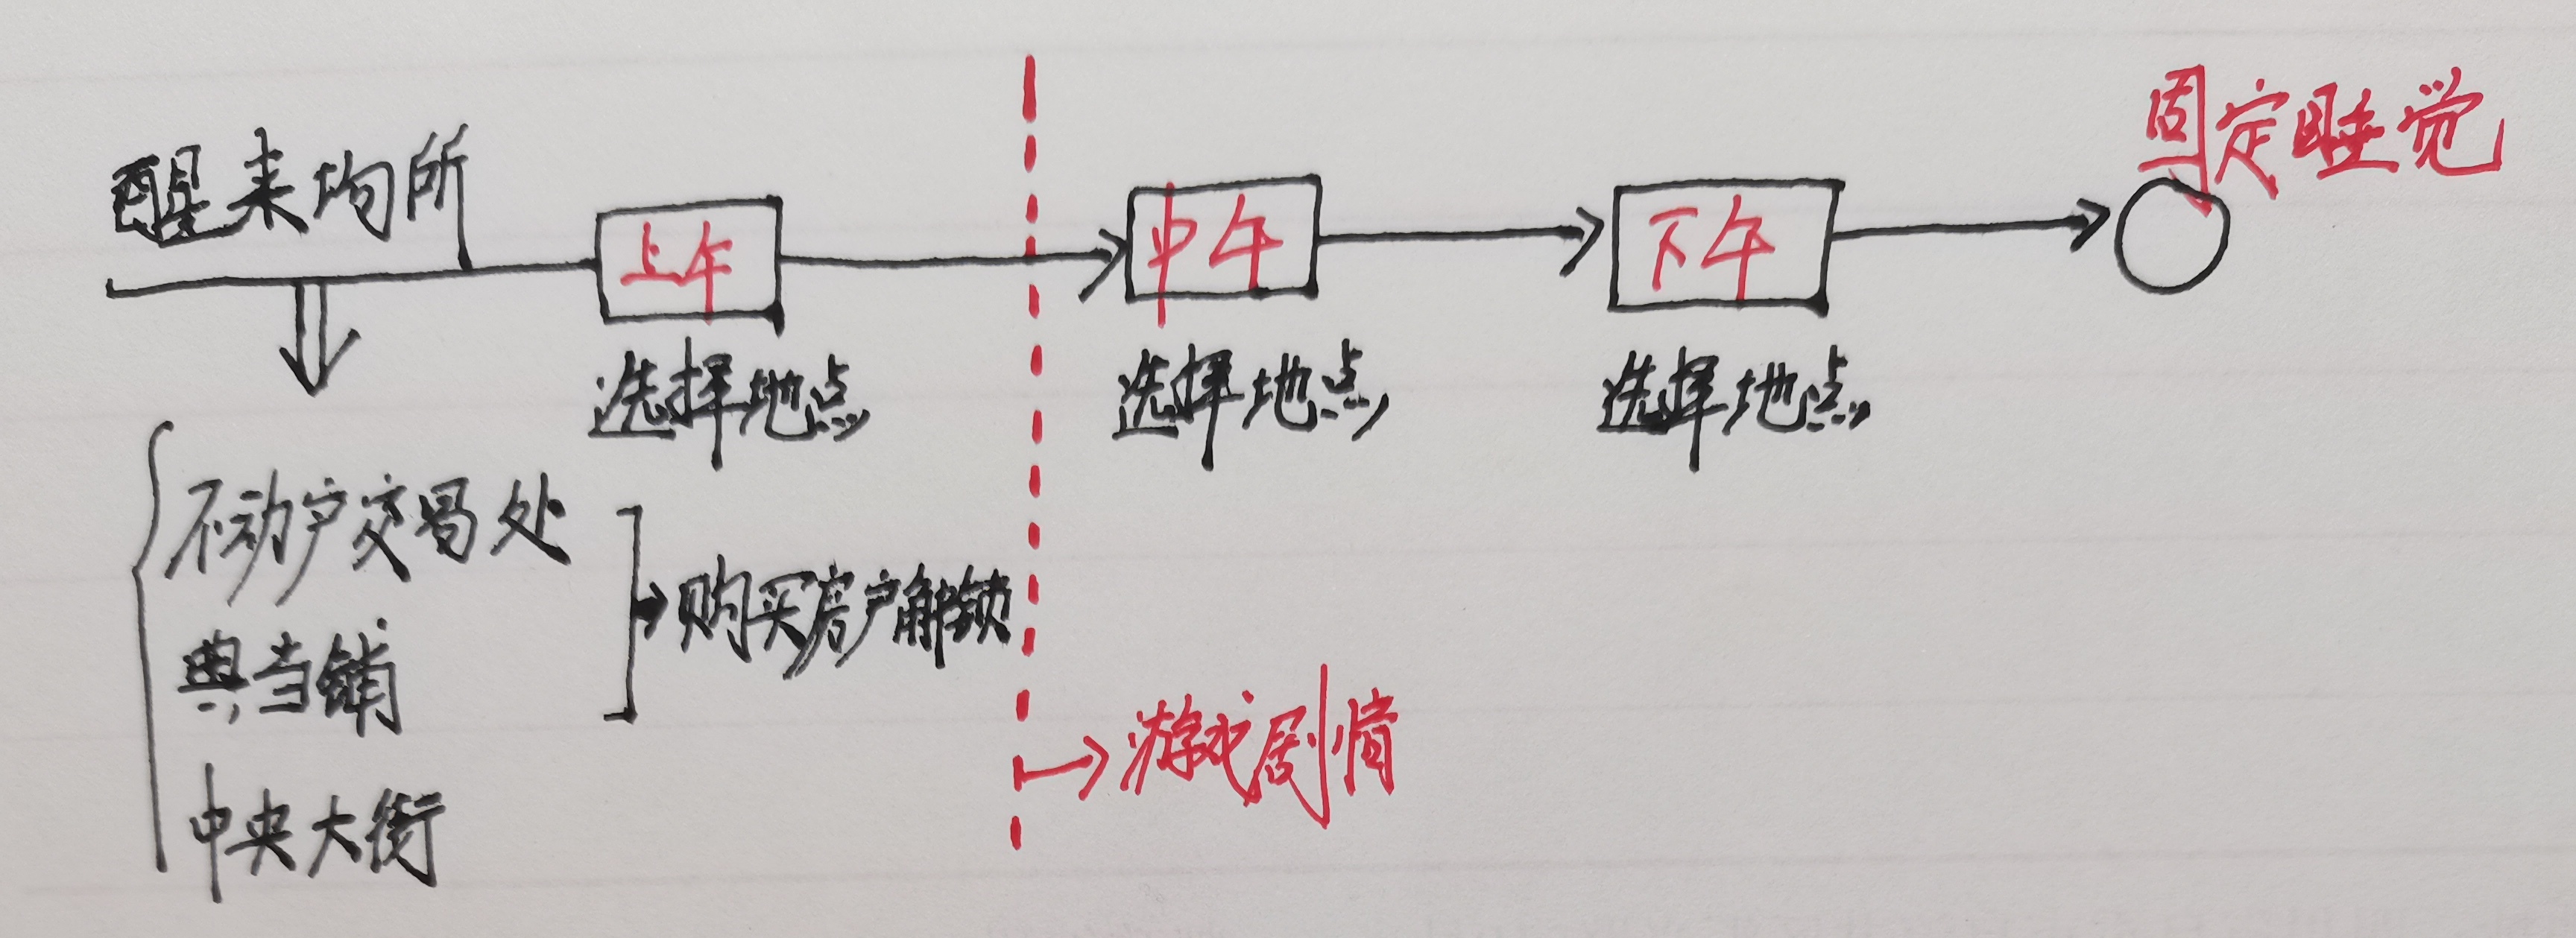 固定睡觉
醒来场所
上午
中午
下午
选择地点
选择地点
选择地点
不动产交易处
购买房产解锁
典当铺
游戏剧情
中央大街